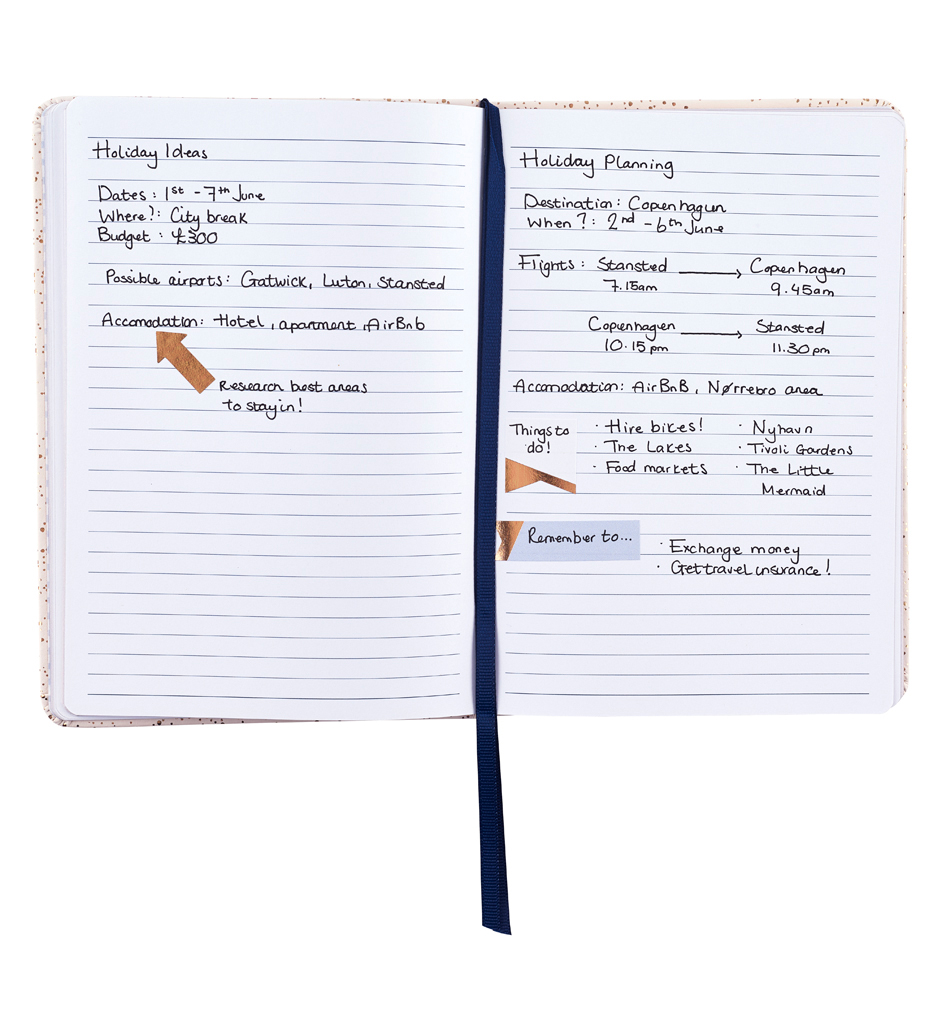 Holiday Ideas
Dates : 1st - 7th June
Where?: City break
Budget : £300
Possible airports: Gatwick, Luton, Stansted
Accomodation: Hotel, apartment, AirBnb
Research best areas
to stay in!
Holiday Planning
Destination: Copenhagen
When?: 2nd - 6th June
Flights : Stansted → Copenhagen
7.15am 9.45am
Copenhagen → Stansted
10.15pm 11.30pm
Accomodation: AirBnB, Nørrebro area
Things to
do!
· Hire bikes!
· The Lakes
· Food markets
· Nyhavn
· Tivoli Gardens
· The Little
Mermaid
Remember to...
· Exchange money
· Get travel insurance!